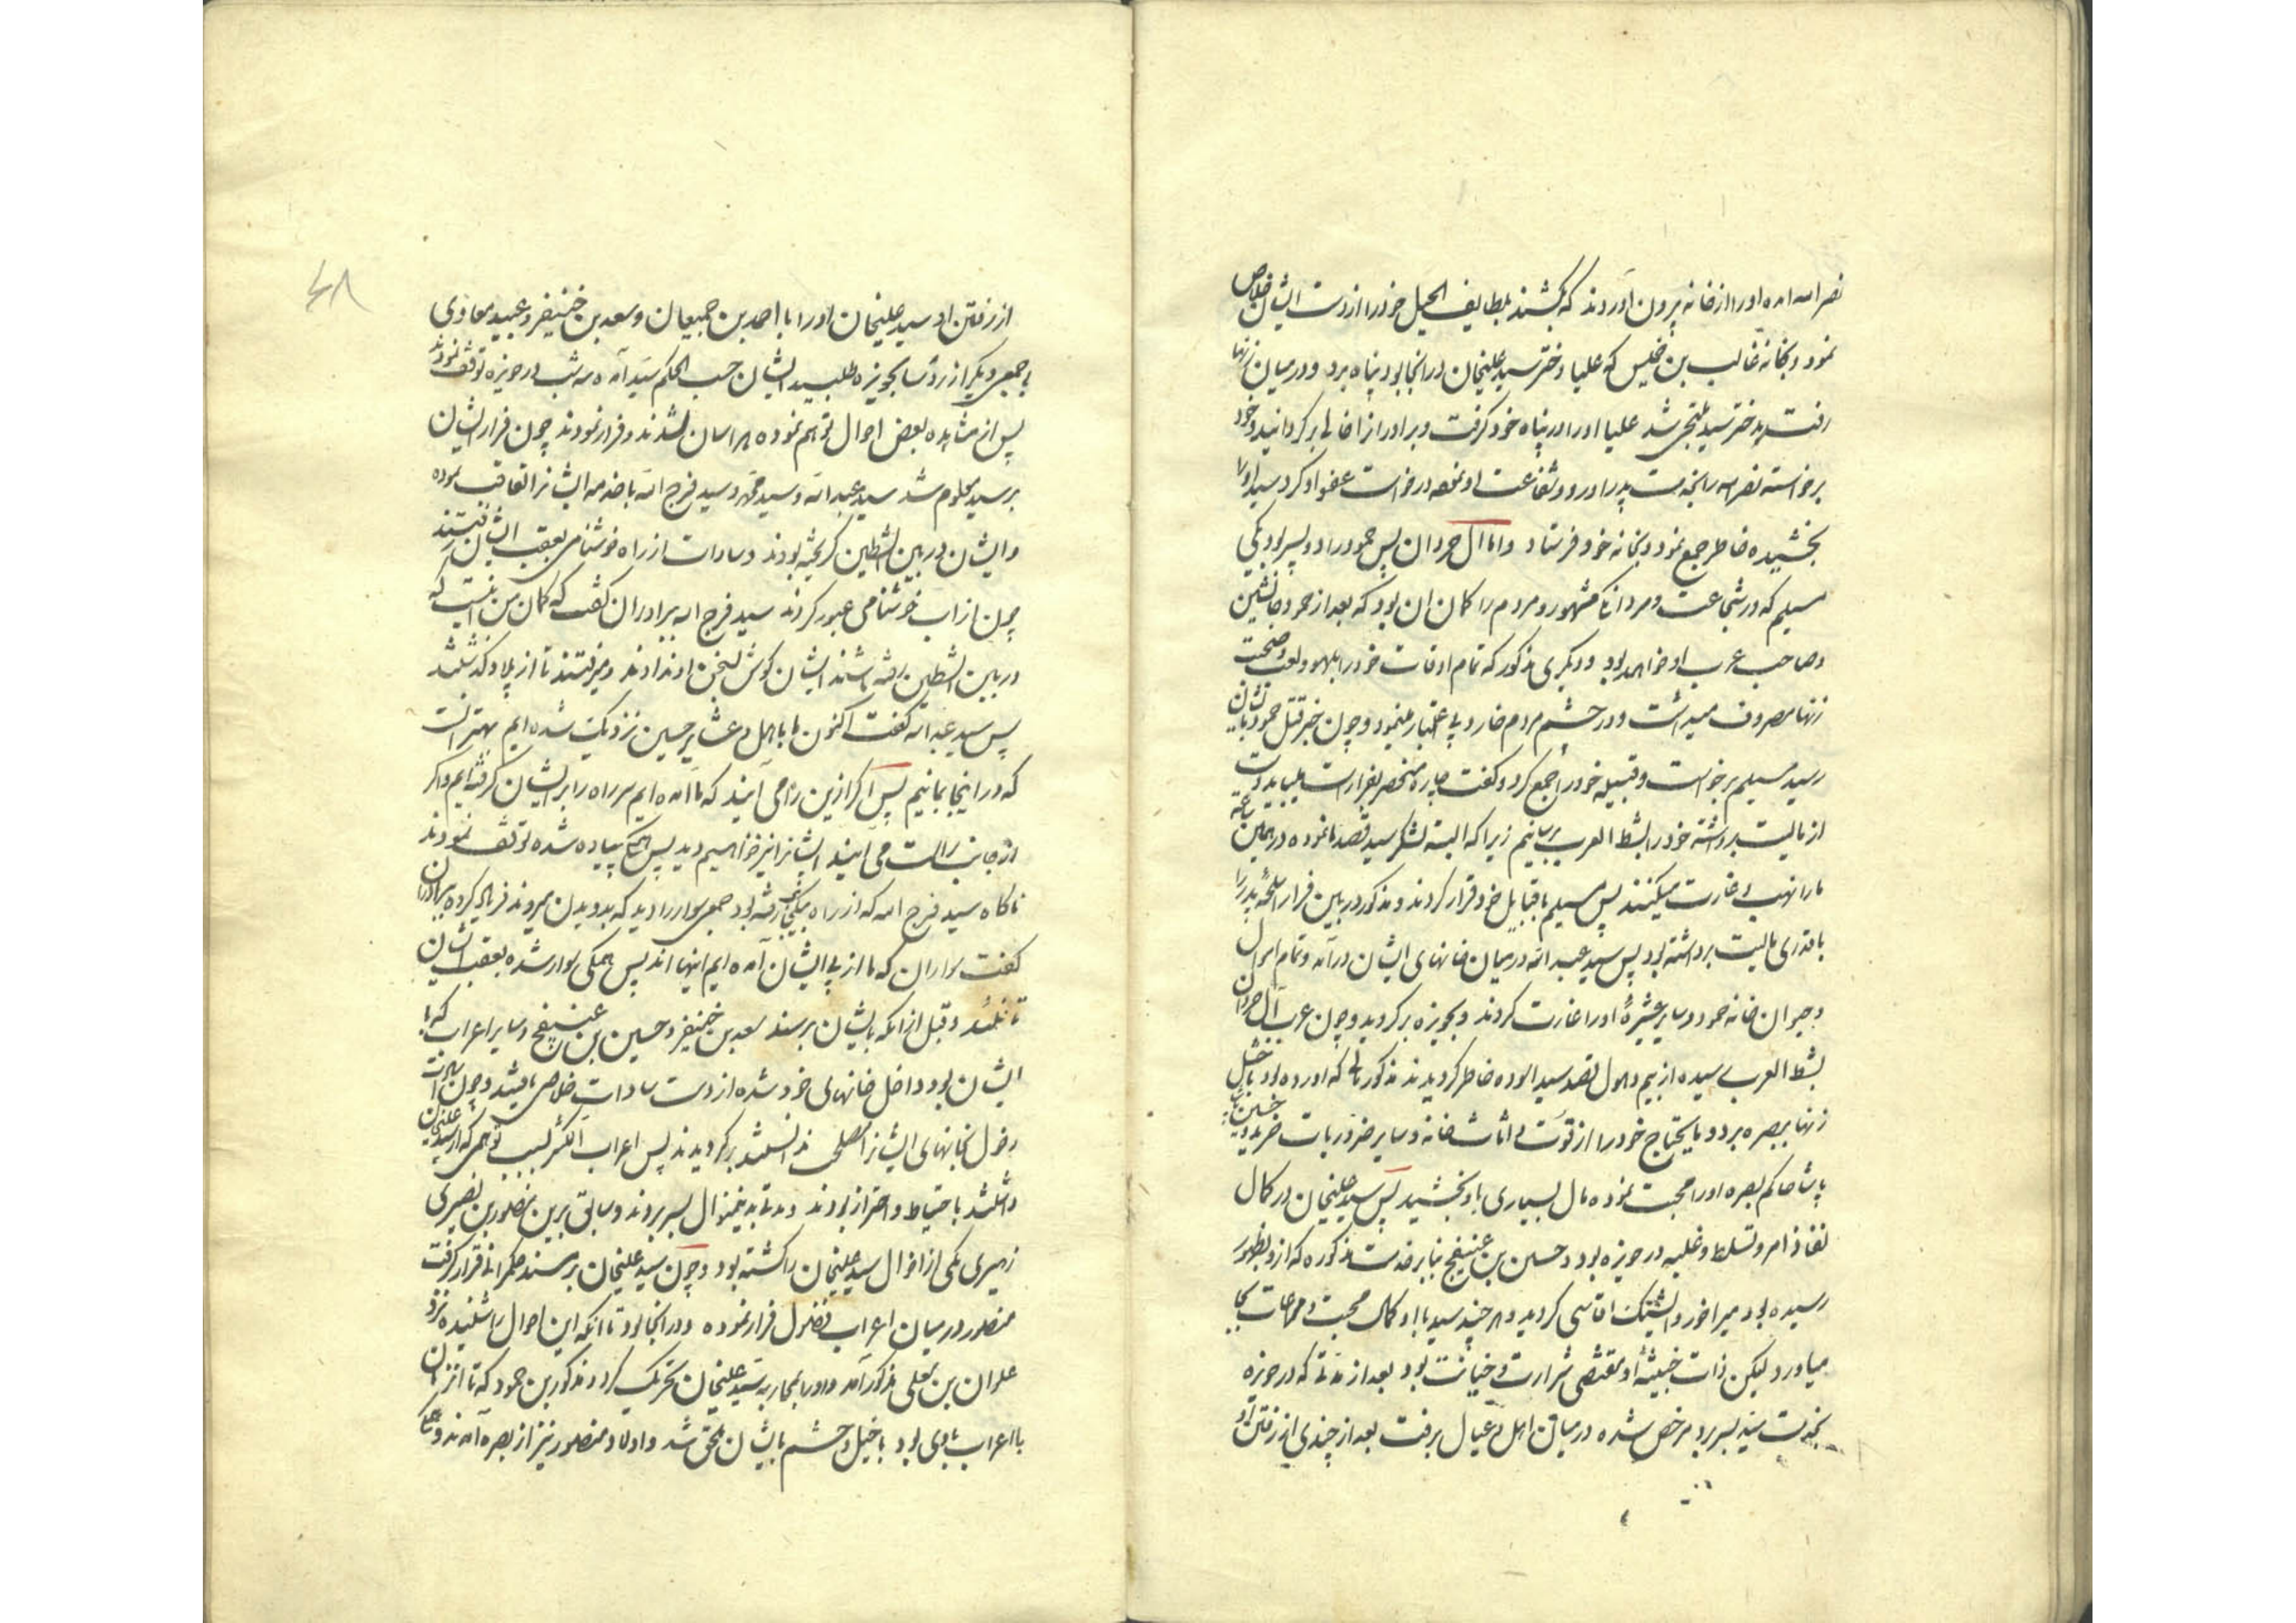 نصرالله آمده او را از خانه بیرون آوردند که بکشند بلطایف الحیل خود را از دست ایشان خلاص
نمود و بخانه غالب بن خلیس که علیا دختر سید علیخان در انجا بود پناه برد و در میان زنها
رفت بدختر سید ملتجی شد علیا او را در پناه خود گرفت و برادر از اغالی بر گردانید و خود
برخواسته نصرالله را بخدمت پدر آورد و شفاعت او نموده درخواست عفو او کرد سید او را
بخشیده خاطر جمع نمود و بخانه خود فرستاد و اما آل حردان پس حمود را دو پسر بود یکی
مسیلم که در شجاعت و مردانکی مشهور و مردم را کمان ان بود که بعد از حمود جانشین
و صاحب عرب او خواهد بود و دیکری مذکور که تمام اوقات خود را بلهو و لعب و صحبت
زنها مصروف میداشت و در چشم مردم خار و بی اعتبار مینمود و چون خبر قتل حمود بایشان
رسید مسیلم برخواست و قبیله خود را جمع کرد و کفت چاره منحصر بفرار است میباید دست
از مالیت برداشته خود را بشط العرب برسانیم زیرا که البته لشکر سید قصد ما نموده در همین ساعة
ما را نهب و غارت میکنند پس مسیلم با قبایل خود قرار کردند و مذکور در بین فرار اسلحه پدر را
با قدری مالیت برداشته بود پس سید عبدالله در میان خانهای ایشان در آمد و تمام اموال
و حیوان خانه حمود و سایر عشیرهٔ او را غارت کردند و بحویزه بر کردید و چون عرب آل حردان
بشط العرب رسیده از بیم و هول قصد سید آسوده خاطر کردیدند مذکور مالی که آورده بود با خیل
زنها ببصره برد و مایحتاج خود را از قوت و اثاث خانه و سایر ضروریات خرید و حسین
پاشا حاکم بصره او را محبت نموده مال بسیاری باو بخشید پس سید علیخان در کمال
نفاذ امر و تسلط و غلبه در حویزه بود و حسین بن عنیفج بنا بر خدمت مذکوره که ازو بظهور
رسیده بود میراخور و ایشیک اقاسی کردید و هر چند سید با او کمال محبت و مراعات بجا
میاورد لیکن ذات خبیثهٔ او مقتضی شرارت و خیانت بود بعد از مدتی که در حویزه
بخدمت سید بسر برد مرخص شده در میان اهل و عیال برفت بعد از چندی از رفتن او
۴۸
از رفتن او سید علیخان او را با احمد بن جمیعان و سعد بن خنیفر و عبید معاوی
با جمعی دیکر از رؤسا بحویزه طلبید ایشان حسب الحکم سید آمده سه شب در حویزه توقف نمودند
پس از مشاهده بعض احوال توهم نموده هراسان شدند و فرار نمودند چون فرار ایشان
بر سید معلوم شد سید عبدالله و سید محمد و سید فرج الله با خدمه ایشانرا تعاقب نموده
و ایشان در بین الشطین کریخته بودند و سادات از راه خوشنامی بعقب ایشان رفتند
چون از آب خوشنامی عبور کردند سید فرج الله ببرادران کفت که کمان من اینست که
در بین الشطین رفته باشند ایشان کوش بسخن او ندادند و میرفتند تا از پلاد کذشتند
پس سید عبدالله کفت اکنون ما باهل و عشایر حسین نزدیک شده ایم بهتر انست
که در اینجا بمانیم پس اکر ازین راه می آیند که ما آمده ایم سر راه را بر ایشان کرفته ایم و اکر
از جانب راست می آیند ایشانرا نیز خواهیم دید پس همکی پیاده شده توقف نمودند
ناکاه سید فرج الله که از راه بیکجانب رفته بود جمعی سوار را دید که بدویدن میروند فریاد کرده برادران را
کفت سواران که ما از پی ایشان آمده ایم اینها اند پس همکی سوار شده بعقب ایشان
تاختند و قبل از انکه بایشان برسند سعد بن خنیفر و حسین بن عنیفج و سایر اعراب که با
ایشان بود داخل خانهای خود شده از دست سادات خلاصی یافتند و چون سادات
دخول خانهای ایشانرا مصلحت ندانستند بر کردیدند پس اعراب اکثر بسبب توهمی که از سید علیخان
داشتند باحتیاط و احتراز بودند و مدتی بدینمنوال بسر بردند و سابق برین منصور بن نصیری
زهیری یکی از اخوال سید علیخان را کشته بود و چون سید علیخان بر مسند حکمرانی قرار کرفت
منصور در میان اعراب فضول فرار نموده و در انجا بود تا انکه این احوال را شنیده نزد
علوان بن معلی مذکور آمد و او را بمحاربه سید علیخان تحریک کرد و مذکور بن حمود که تا انزمان
با اعراب بادی بود با خیل و حشم بایشان ملحق شد و اولاد منصور نیز از بصره آمدند و